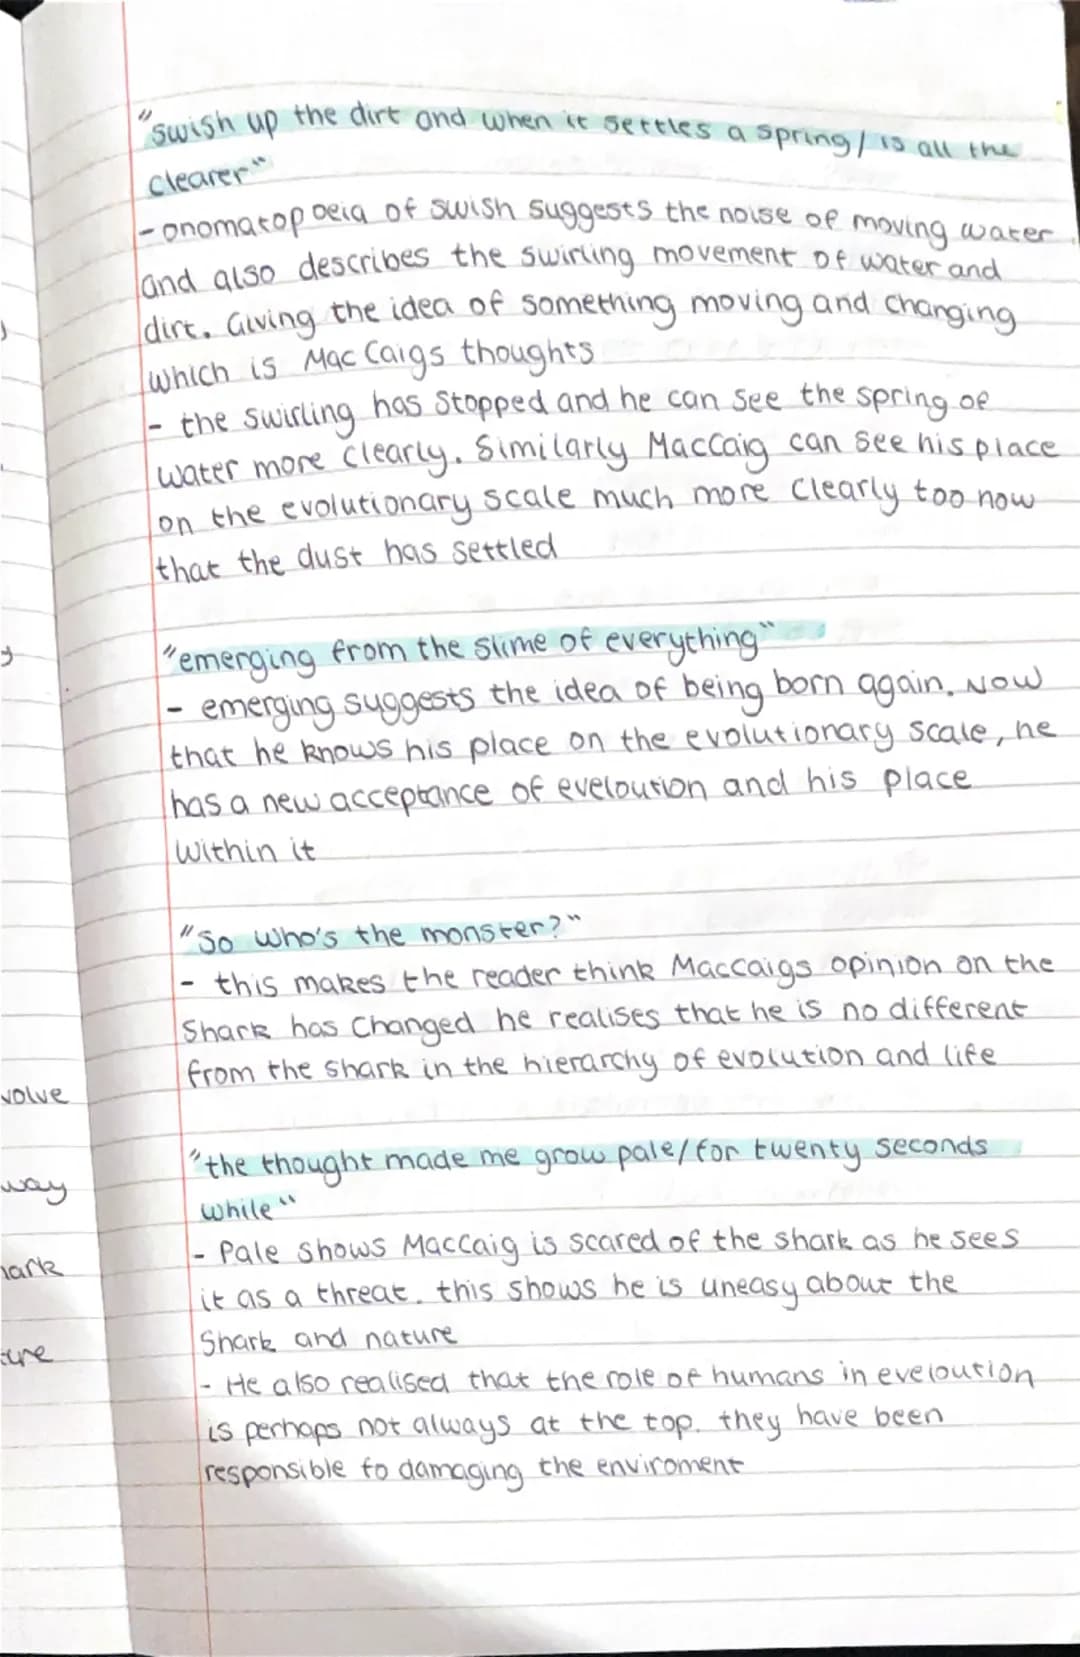 "swish up the dirt and when it settles a spring/ is all the
clearer"
- onomatopoeia of swish suggests the noise of moving water
and also describes the swirling movement of water and
dirt. Giving the idea of something moving and changing
which is MacCaigs thoughts
- the swirling has stopped and he can see the spring of
water more clearly. Similarly MacCaig can see his place
on the evolutionary scale much more clearly too now
that the dust has settled
"emerging from the slime of everything"
- emerging suggests the idea of being born again. Now
that he knows his place on the evolutionary scale, he
has a new acceptance of eveloution and his place
within it
"So who's the monster?"
- this makes the reader think Maccaigs opinion on the
Shark has changed he realises that he is no different
from the shark in the hierarchy of evolution and life
volve
"the thought made me grow pale/for twenty seconds
way
while"
- Pale shows Maccaig is scared of the shark as he sees
hark
it as a threat. this shows he is uneasy about the
Shark and nature
ture
- He also realised that the role of humans in eveloution
is perhaps not always at the top. they have been
responsible to damaging the enviroment